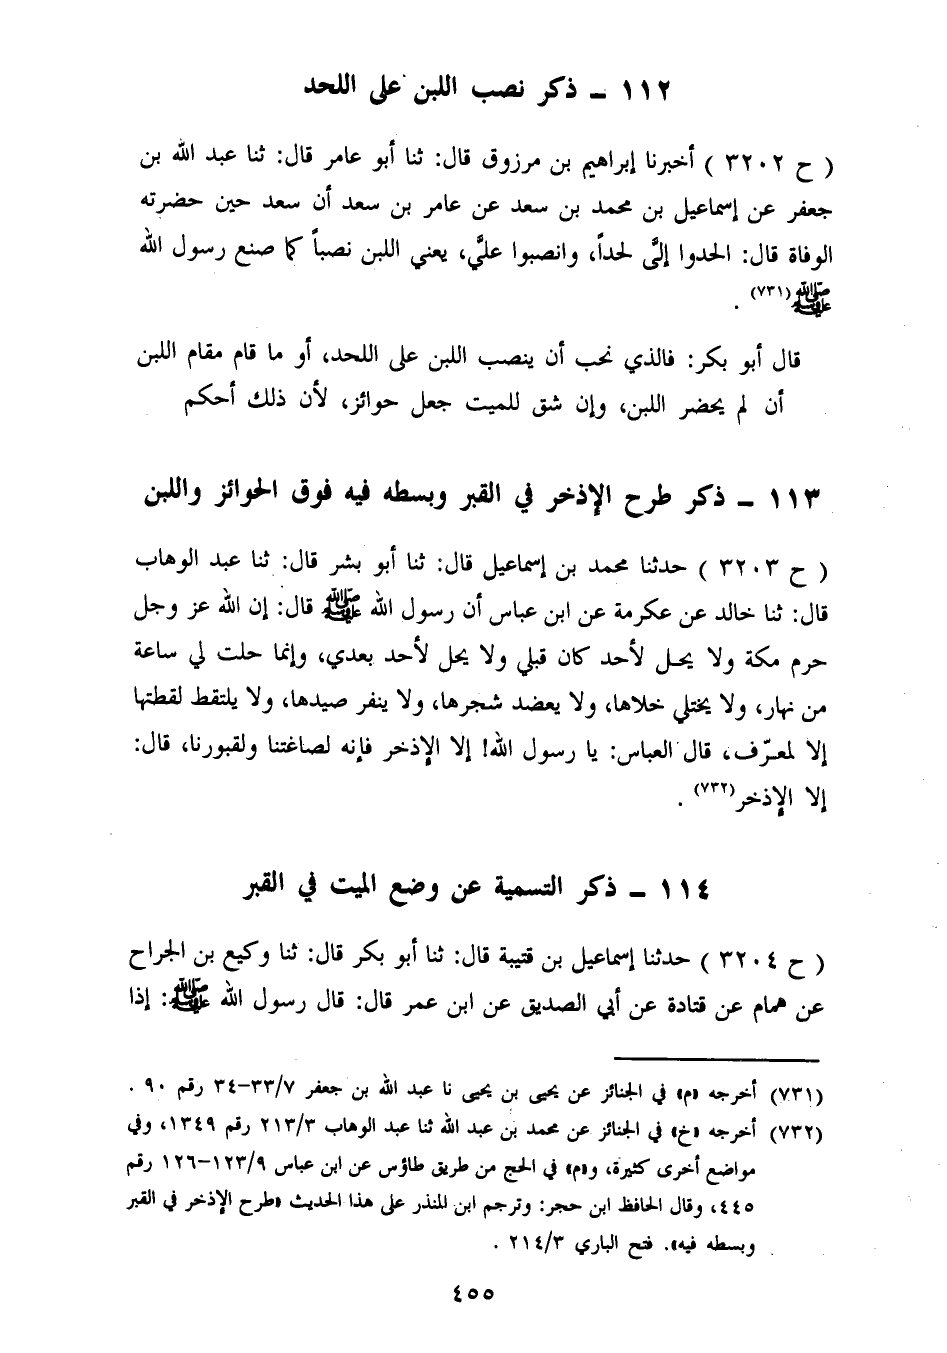 ١١٢ ـ ذكر نصب اللبن على اللحد
( ح ٣٢٠٢ ) أخبرنا إبراهيم بن مرزوق قال: ثنا أبو عامر قال: ثنا عبد الله بن
جعفر عن إسماعيل بن محمد بن سعد عن عامر بن سعد أن سعد حين حضرته
الوفاة قال: الحدوا إليَّ لحداً، وانصبوا عليَّ، يعني اللبن نصباً كما صنع رسول الله
ﷺ(٧٣١) .
قال أبو بكر: فالذي نحب أن ينصب اللبن على اللحد، أو ما قام مقام اللبن
أن لم يحضر اللبن، وإن شق للميت جعل حوائز، لأن ذلك أحكم
١١٣ ـ ذكر طرح الإذخر في القبر وبسطه فيه فوق الحوائز واللبن
( ح ٣٢٠٣ ) حدثنا محمد بن إسماعيل قال: ثنا أبو بشر قال: ثنا عبد الوهاب
قال: ثنا خالد عن عكرمة عن ابن عباس أن رسول الله ﷺ قال: إن الله عز وجل
حرم مكة ولا يحل لأحد كان قبلي ولا يحل لأحد بعدي، وإنما حلت لي ساعة
من نهار، ولا يختلي خلاها، ولا يعضد شجرها، ولا ينفر صيدها، ولا يلتقط لقطتها
إلا لمعرّف، قال العباس: يا رسول الله! إلا الإذخر فإنه لصاغتنا ولقبورنا، قال:
إلا الإذخر(٧٣٢) .
١١٤ ـ ذكر التسمية عن وضع الميت في القبر
( ح ٣٢٠٤ ) حدثنا إسماعيل بن قتيبة قال: ثنا أبو بكر قال: ثنا وكيع بن الجراح
عن همام عن قتادة عن أبي الصديق عن ابن عمر قال: قال رسول الله ﷺ: إذا
(٧٣١) أخرجه «م» في الجنائز عن يحيى بن يحيى نا عبد الله بن جعفر ٧/ ٣٣-٣٤ رقم ٩٠ .
(٧٣٢) أخرجه «خ» في الجنائز عن محمد بن عبد الله ثنا عبد الوهاب ٣/ ٢١٣ رقم ١٣٤٩، وفي
مواضع أخرى كثيرة، و«م» في الحج من طريق طاؤس عن ابن عباس ٩/ ١٢٣-١٢٦ رقم
٤٤٥، وقال الحافظ ابن حجر: وترجم ابن المنذر على هذا الحديث «طرح الإذخر في القبر
وبسطه فيه». فتح الباري ٣/ ٢١٤ .
٤٥٥